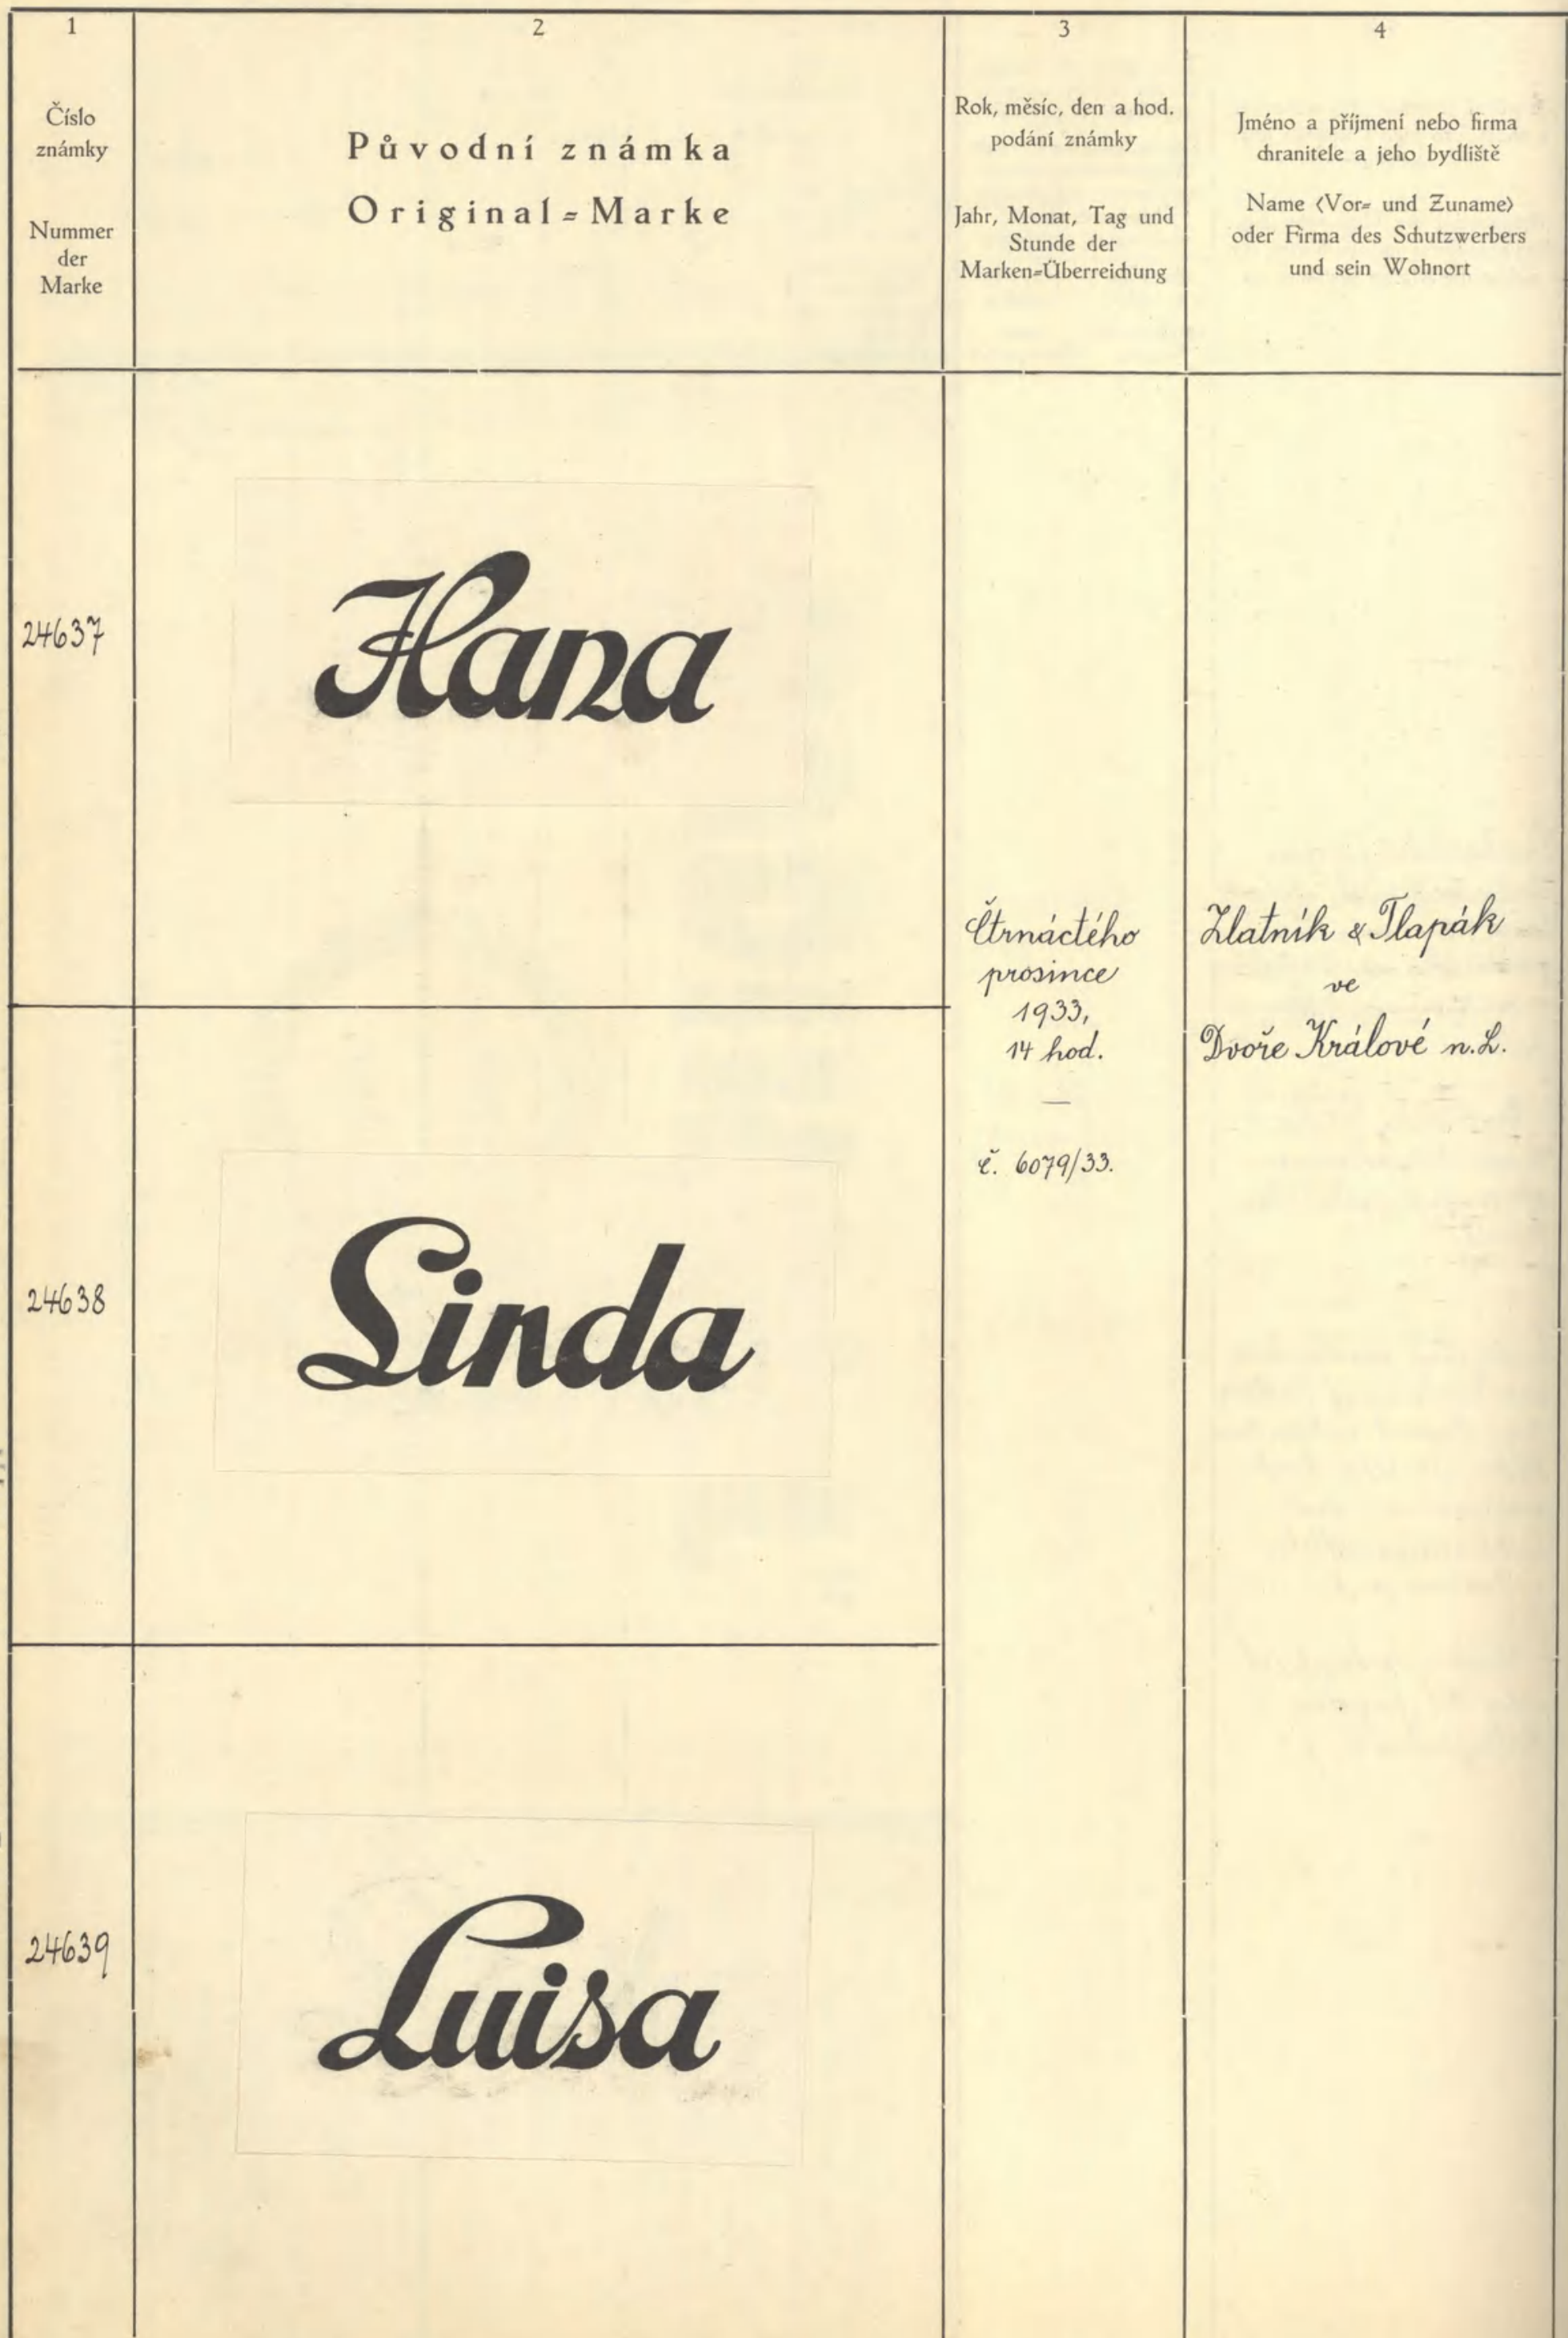 1
Číslo
známky
Nummer
der
Marke
2
Původní známka
Original=Marke
3
Rok, měsíc, den a hod.
podání známky
Jahr, Monat, Tag und
Stunde der
Marken=Überreichung
4
Jméno a příjmení nebo firma
chranitele a jeho bydliště
Name (Vor= und Zuname)
oder Firma des Schutzwerbers
und sein Wohnort
24637
Hana
Čtrnáctého
prosince
1933,
14 hod.
—
č. 6079/33.
Zlatník & Tlapák
ve
Dvoře Králové n.L.
24638
Linda
24639
Luisa